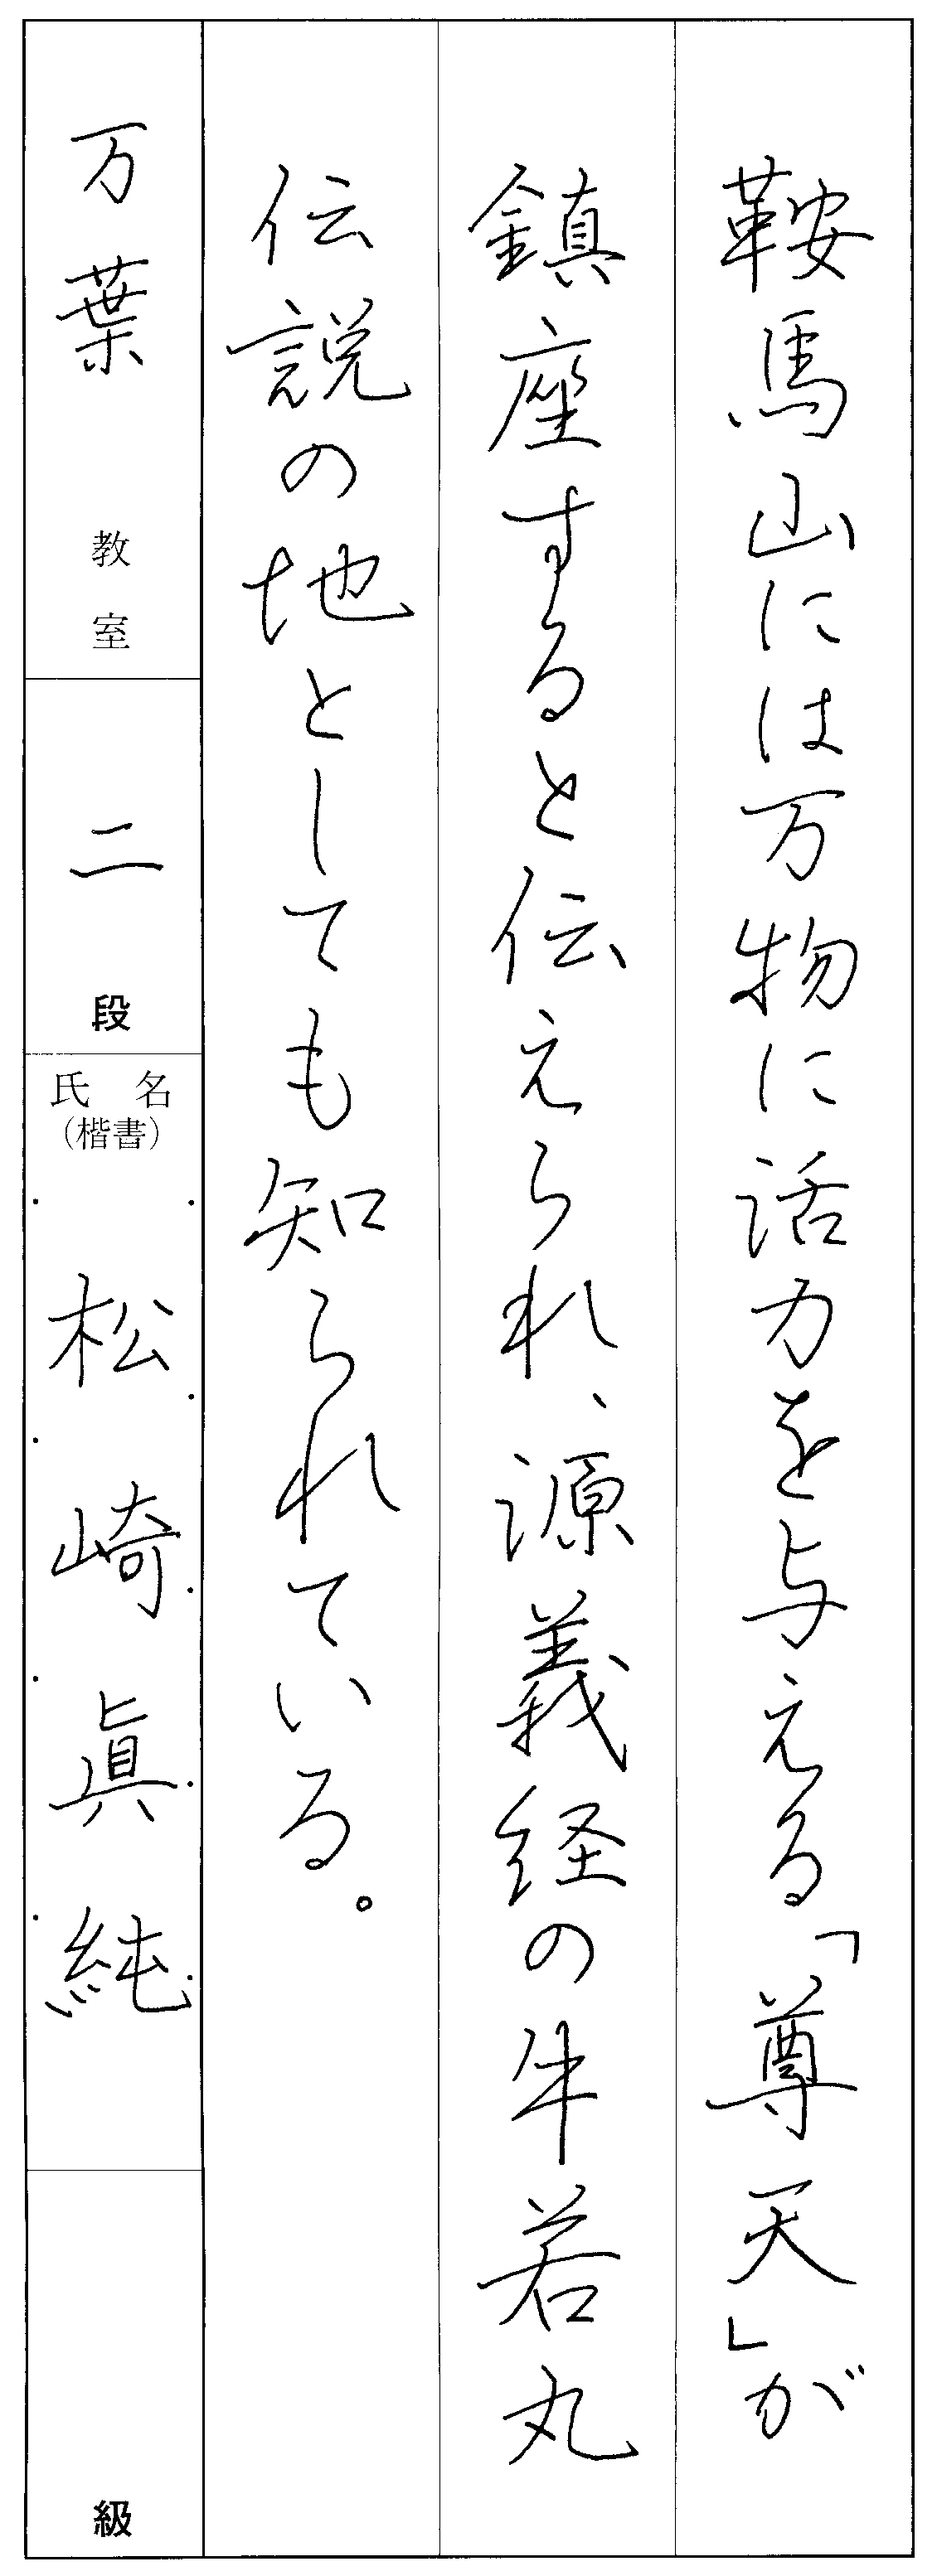 鞍馬山には万物に活力を与える「尊天」が
鎮座すると伝えられ、源義経の牛若丸
伝説の地としても知られている。
万葉教室
二段
氏名
(楷書)
松崎眞純
級